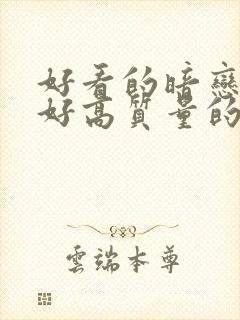 好看的暗戀
好高質量的
雲端本尊